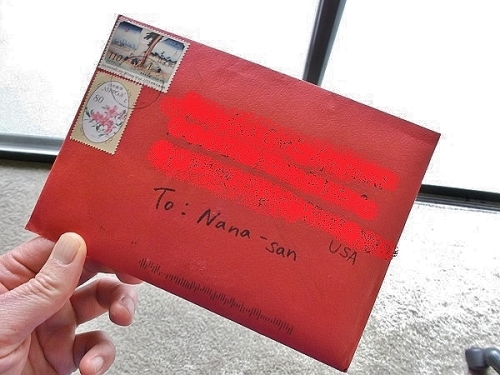 110
80
NIPPON
To: Nana-san
USA